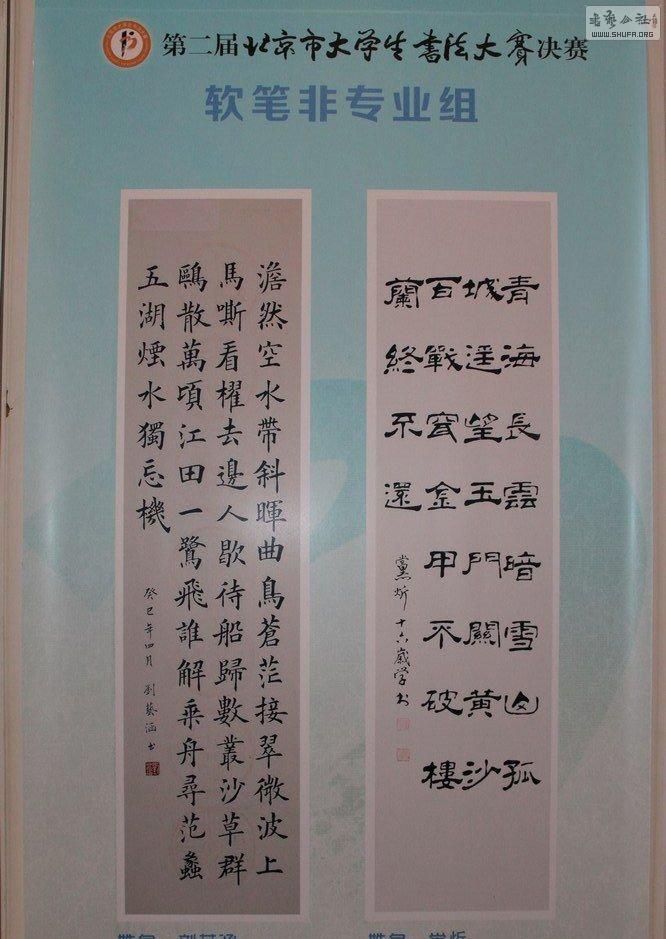 書藝公社
WWW.SHUFA.ORG
第二届北京市大学生書法大賽决赛
软笔非专业组
青海長雲暗雪山孤
城遥望玉門關黄沙
百戰穿金甲不破樓
蘭終不還
黨炘十六歲學书
澹然空水帶斜暉曲鳥蒼茫接翠微波上
馬嘶看櫂去邊人歇待船歸數叢沙草群
鷗散萬頃江田一鷺飛誰解乘舟尋范蠡
五湖煙水獨忘機
癸巳年四月劉藝涵书